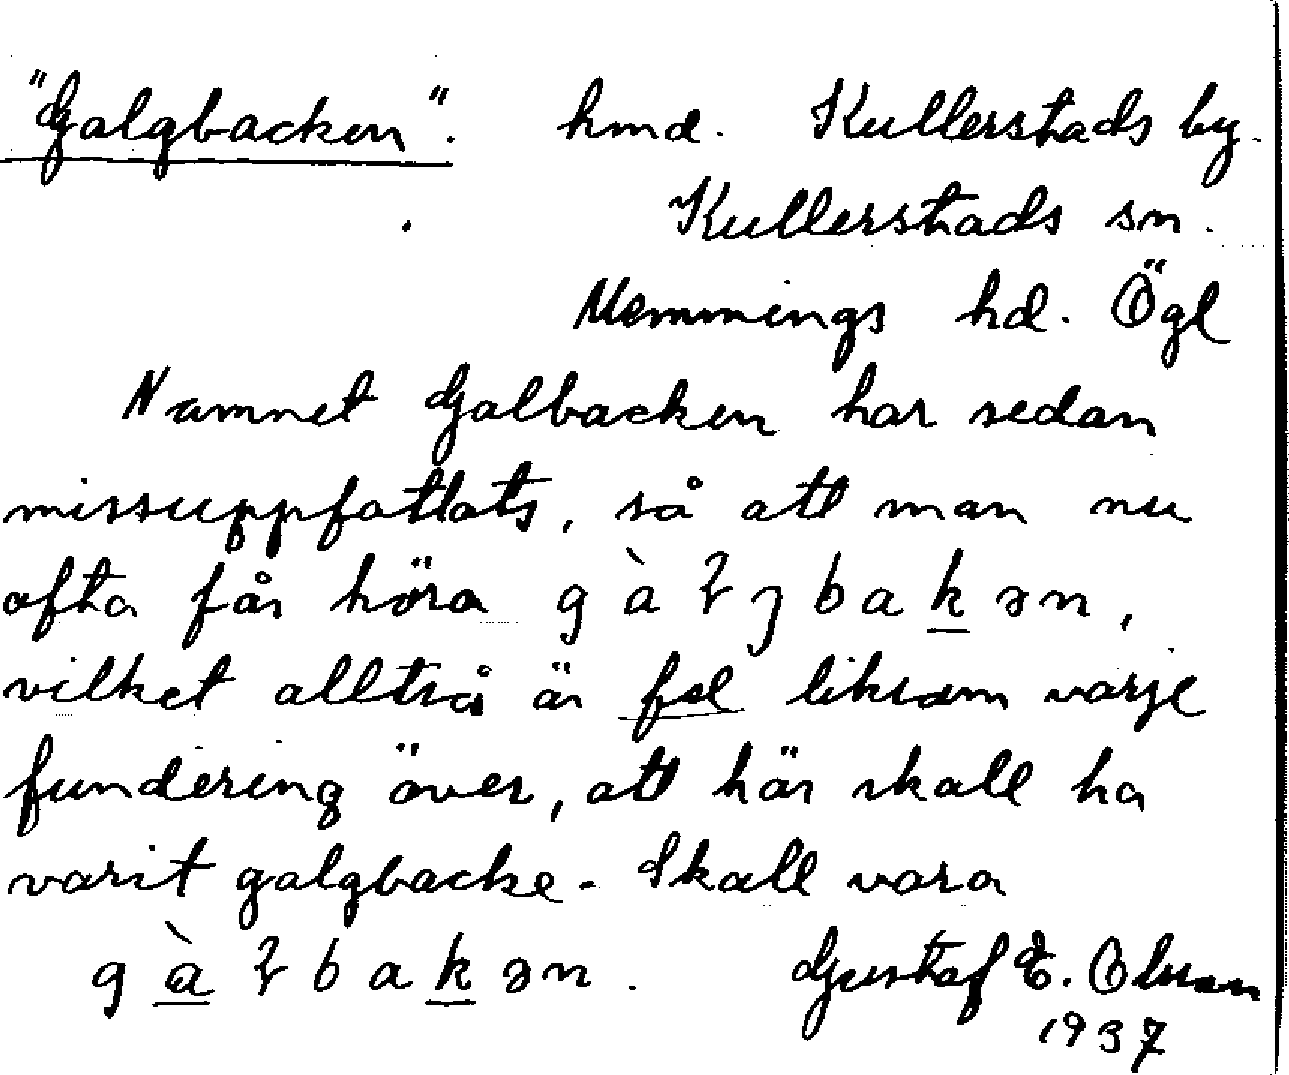 "Galgbacken". hmd. Kullerstads by.
Kullerstads sn.
Memmings hd. Ögl
Namnet Galbacken har sedan
missuppfattats, så att man nu
ofta får höra
vilket alltså är fel liksom varje
fundering över, att här skall ha
varit galgbacke. Skall vara
Gustaf E. Olsson
1937